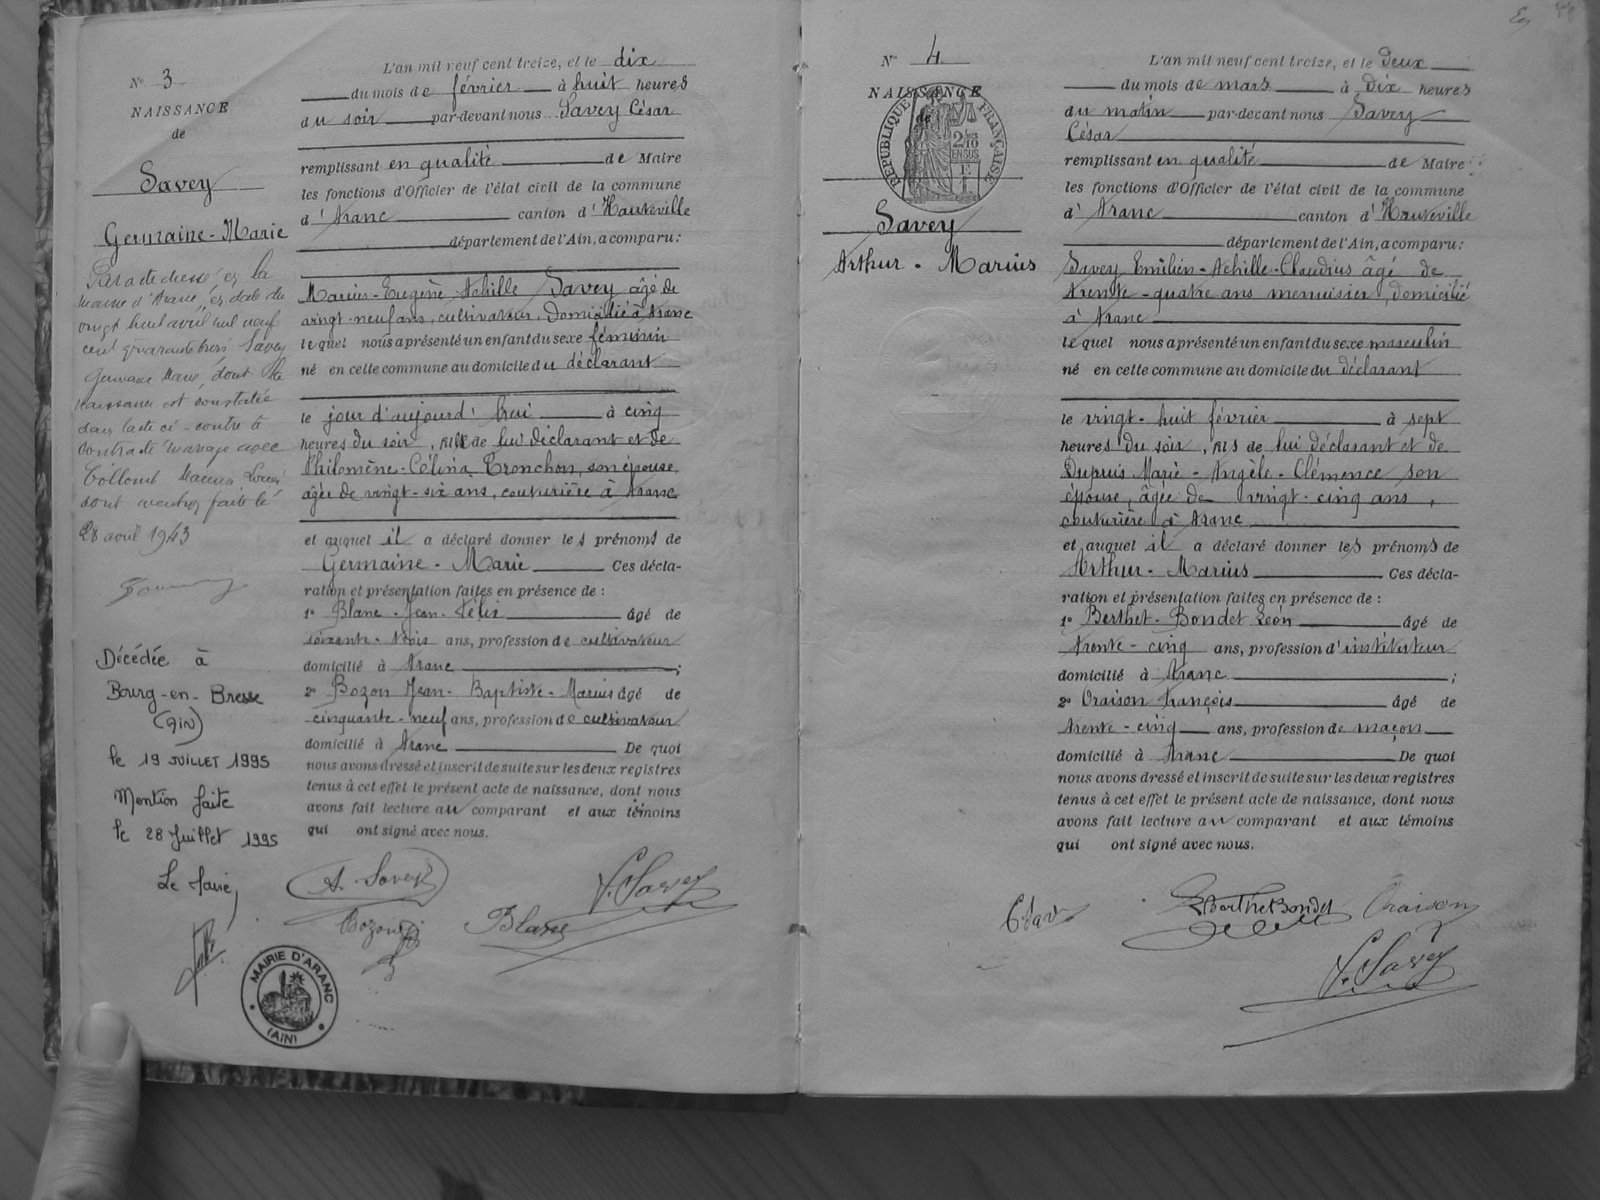 N° 3
NAISSANCE
de
Savey
Germaine-Marie
Par acte dressé, en la
mairie d'Aranc, en date du
vingt huit avril mil neuf
cent quarante trois Savey
Germaine Marie, dont la
naissance est constatée
dans l'acte ci-contre a
contracté mariage avec
dont mention faite le
28 avril 1943
Décédée à
Bourg-en-Bresse
(Ain)
le 19 JUILLET 1995
Mention faite
le 28 Juillet 1995
Le Maire,
MAIRIE D'ARANC
(AIN)
L'an mil neuf cent treize, et le dix
du mois de février à huit heures
du soir par-devant nous Savey César
remplissant en qualité de Maire
les fonctions d'Officier de l'état civil de la commune
d'Aranc canton d'Hauteville
département de l'Ain, a comparu:
Marius-Eugène Achille Savey âgé de
vingt-neuf ans, cultivateur, domicilié à Aranc
lequel nous a présenté un enfant du sexe féminin
né en cette commune au domicile du déclarant
le jour d'aujourd'hui à cinq
heures du soir, fille de lui déclarant et de
Philomène-Célina Tronchon, son épouse,
âgée de vingt-six ans, couturière à Aranc
et auquel il a déclaré donner les prénoms de
Germaine-Marie Ces décla-
ration et présentation faites en présence de :
1° Blanc-Jean-Félix âgé de
soixante-trois ans, profession de cultivateur
domicilié à Aranc ;
2° Bozon Jean-Baptiste-Marius âgé de
cinquante-neuf ans, profession de cultivateur
domicilié à Aranc De quoi
nous avons dressé et inscrit de suite sur les deux registres
tenus à cet effet le présent acte de naissance, dont nous
avons fait lecture au comparant et aux témoins
qui ont signé avec nous.
A. Savey
Bozon
Blanc
C. Savey
N° 4
NAISSANCE
de
RÉPUBLIQUE FRANÇAISE
2/10
EN SUS
Savey
Arthur-Marius
L'an mil neuf cent treize, et le deux
du mois de mars à dix heures
du matin par-devant nous Savey
César
remplissant en qualité de Maire
les fonctions d'Officier de l'état civil de la commune
d'Aranc canton d'Hauteville
département de l'Ain, a comparu:
Savey Emilien-Achille-Claudius âgé de
trente-quatre ans menuisier, domicilié
à Aranc
lequel nous a présenté un enfant du sexe masculin
né en cette commune au domicile du déclarant
le vingt-huit février à sept
heures du soir, fils de lui déclarant et de
Dupuis Marie-Angèle-Clémence son
épouse, âgée de vingt-cinq ans,
couturière à Aranc
et auquel il a déclaré donner les prénoms de
Arthur-Marius Ces décla-
ration et présentation faites en présence de :
1° Berthet-Bondet Léon âgé de
trente-cinq ans, profession d'instituteur
domicilié à Aranc ;
2° Oraison François âgé de
trente-cinq ans, profession de maçon
domicilié à Aranc De quoi
nous avons dressé et inscrit de suite sur les deux registres
tenus à cet effet le présent acte de naissance, dont nous
avons fait lecture au comparant et aux témoins
qui ont signé avec nous.
BerthetBondet
Oraison
C. Savey